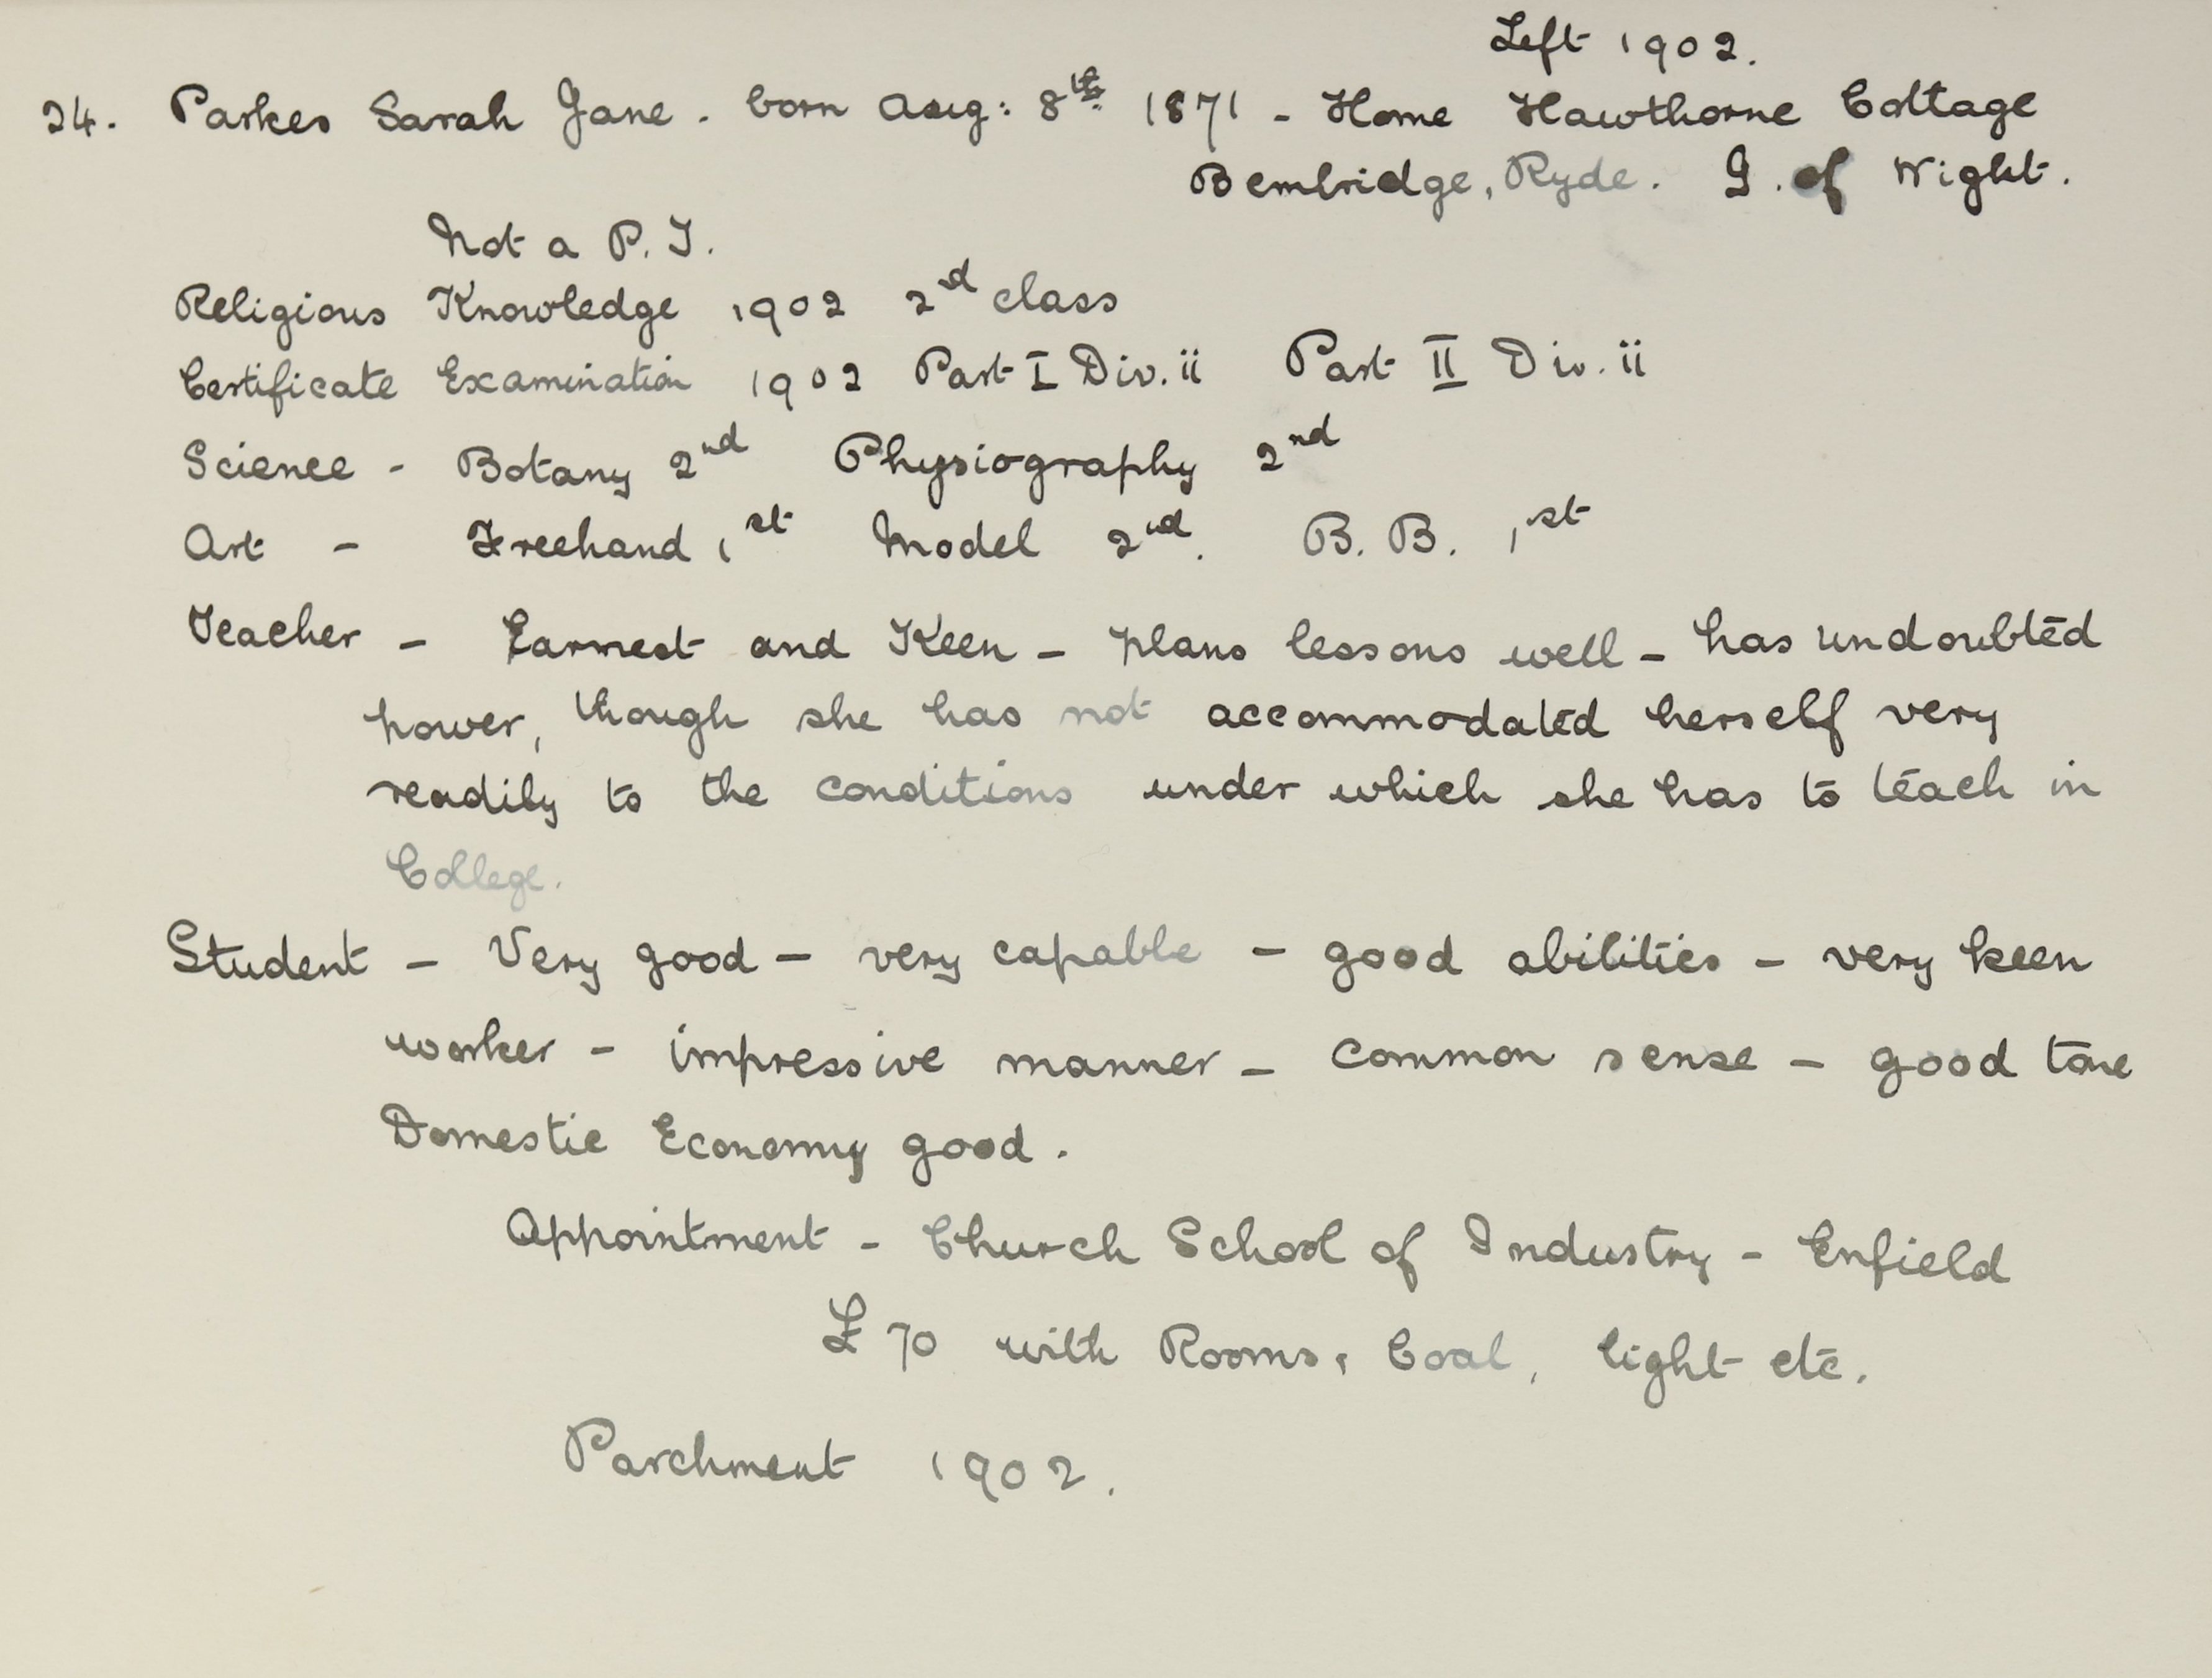 Left 1902.
24. Parkes Sarah Jane. born Aug: 8th 1871 - Home Hawthorne Cottage
Bembridge, Ryde. I. of Wight.
Not a P. T.
Religious Knowledge 1902 2nd class
Certificate Examination 1902 Part I Div. ii Part II Div. ii
Science - Botany 2nd Physiography 2nd
Art - Freehand 1st Model 2nd. B. B. 1st
Teacher - Earnest and Keen - plans lessons well - has undoubted
power, though she has not accommodated herself very
readily to the conditions under which she has to teach in
College.
Student - Very good - very capable - good abilities - very keen
worker - impressive manner - common sense - good tone
Domestic Economy good.
Appointment - Church School of Industry - Enfield
£70 with Rooms, Coal, light etc.
Parchment 1902.